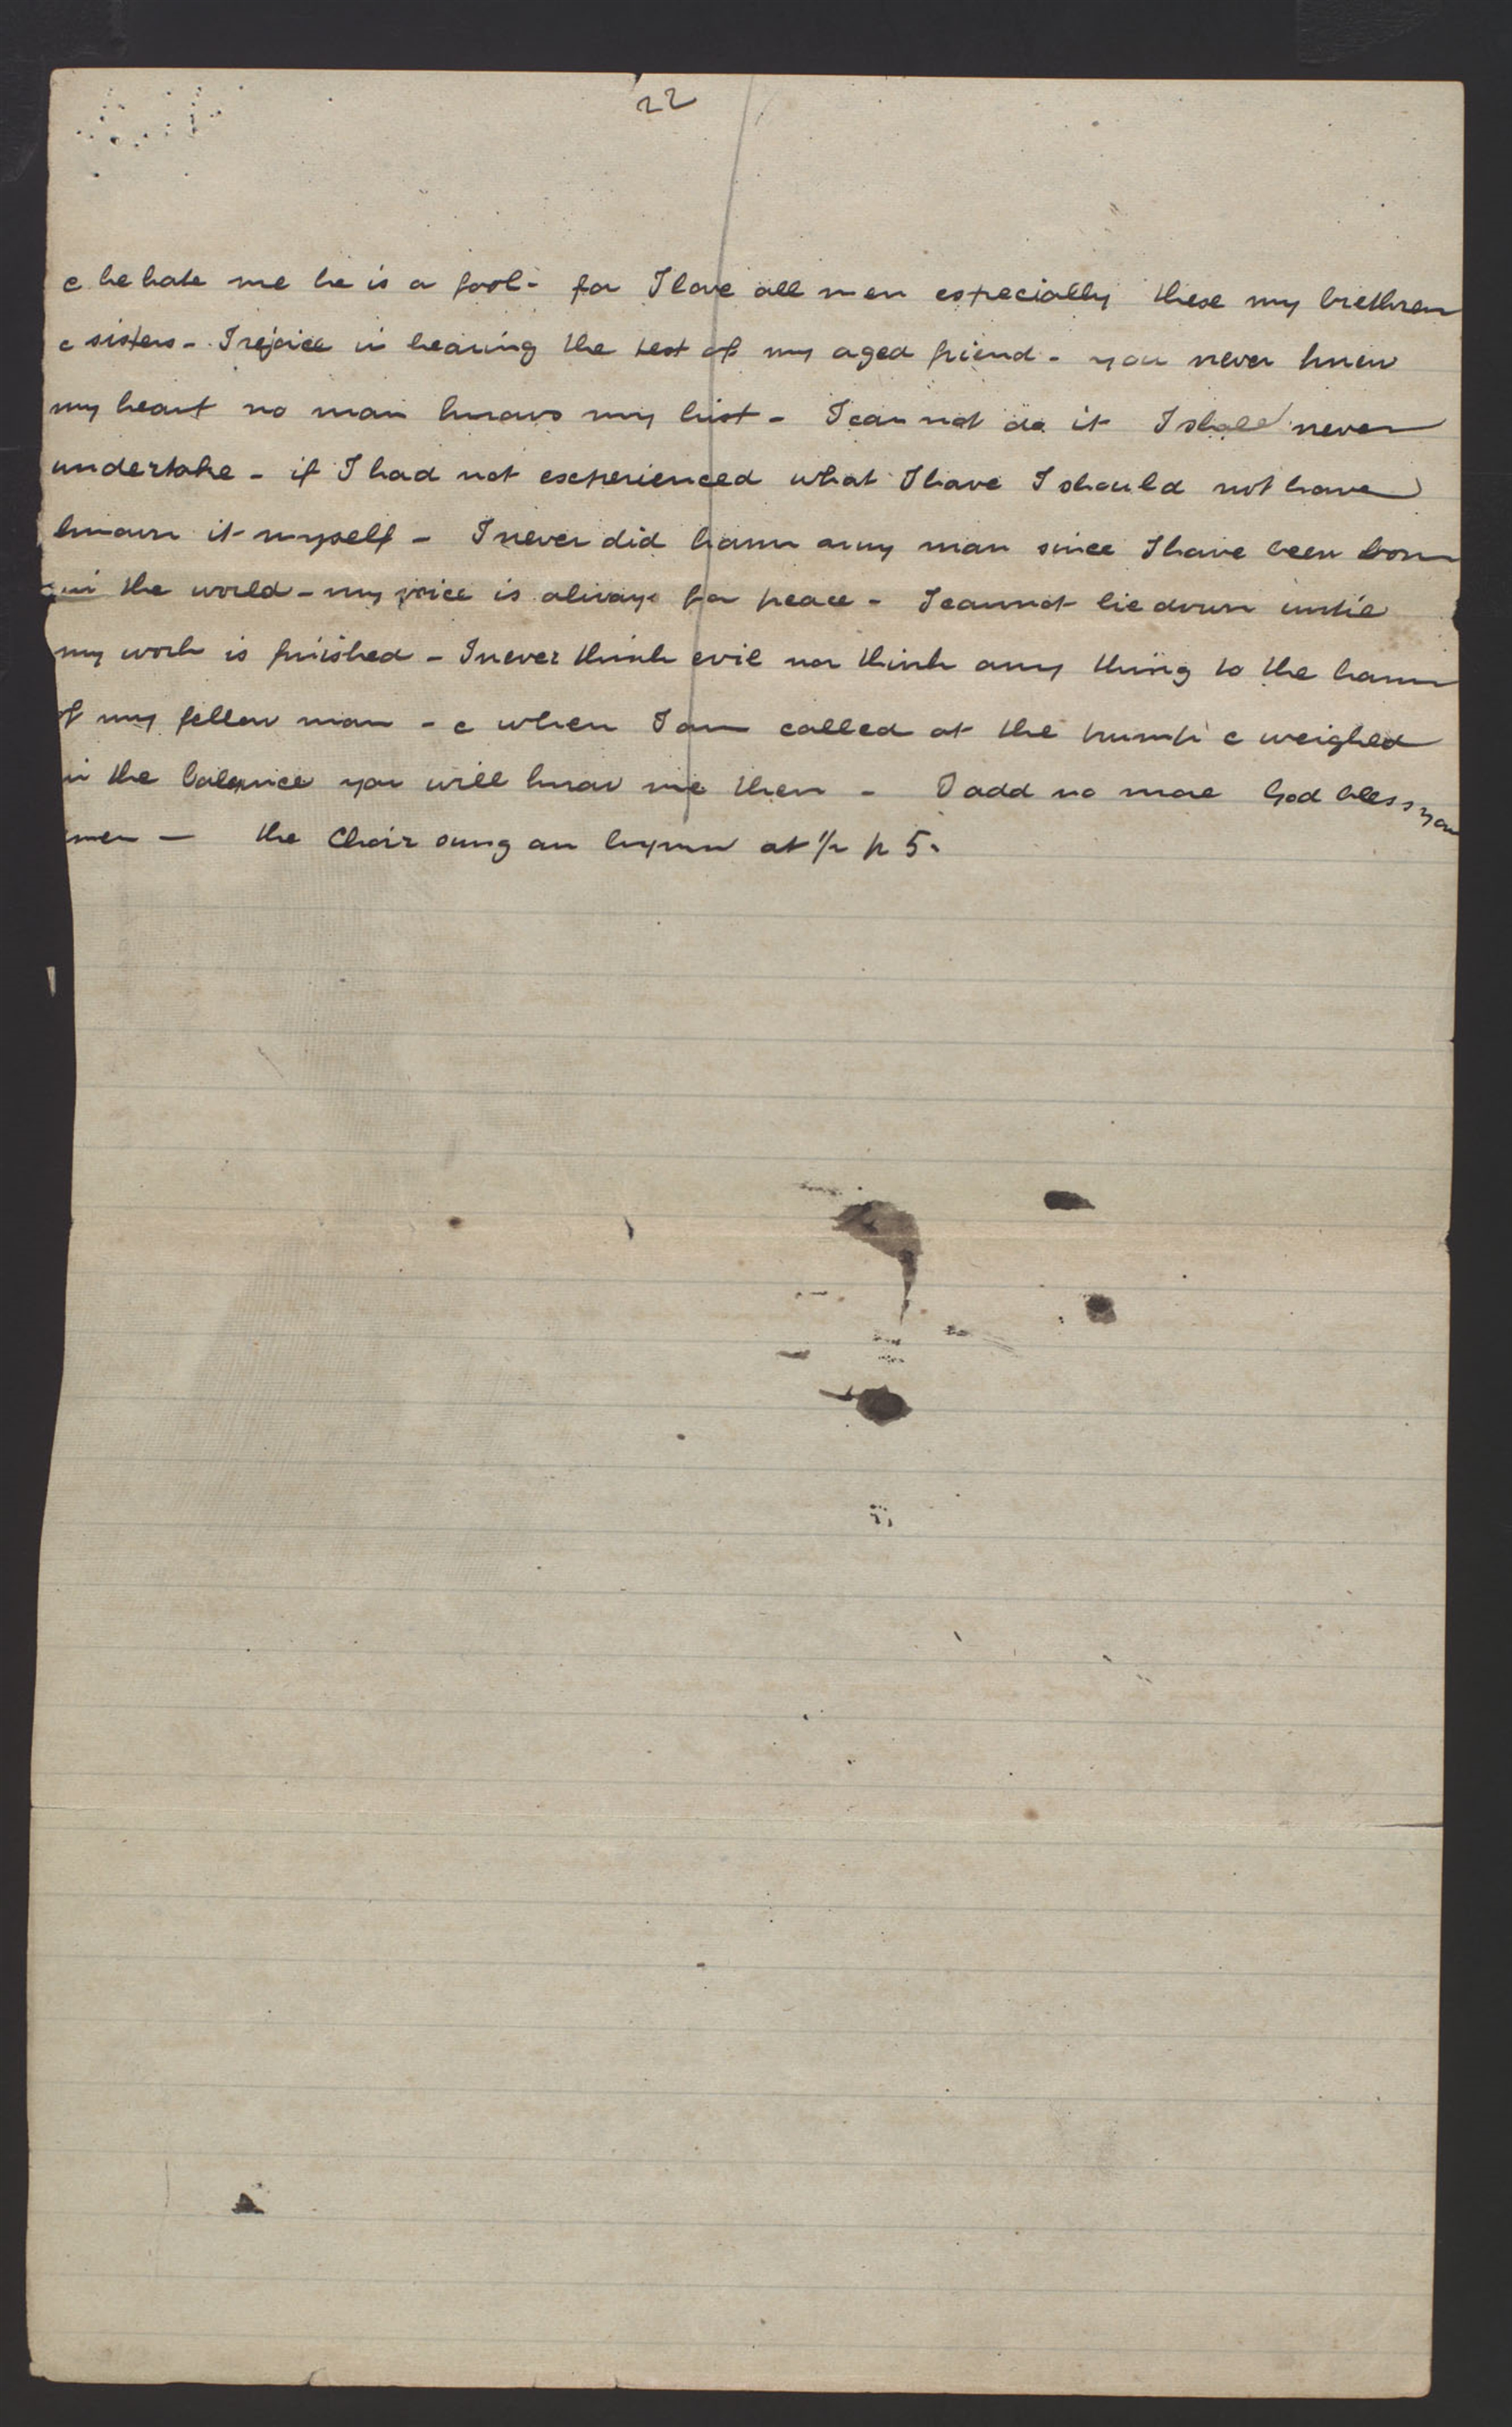 22
& he hate me he is a fool - for I love all men especially these my brethren
& sisters - I rejoice in hearing the test of my aged friend - you never knew
my heart no man knows my hist - I can not do it I shall never
undertake - if I had not experienced what I have I should not have
known it myself - I never did harm any man since I have been born
in the world - my voice is always for peace - I cannot lie down until
my work is finished - I never think evil nor think any thing to the harm
of my fellow man - & when I am called at the trump & weighed
in the balance you will know me then - I add no more God bless you
men — the Choir sung an hymn at 1/2 p 5.